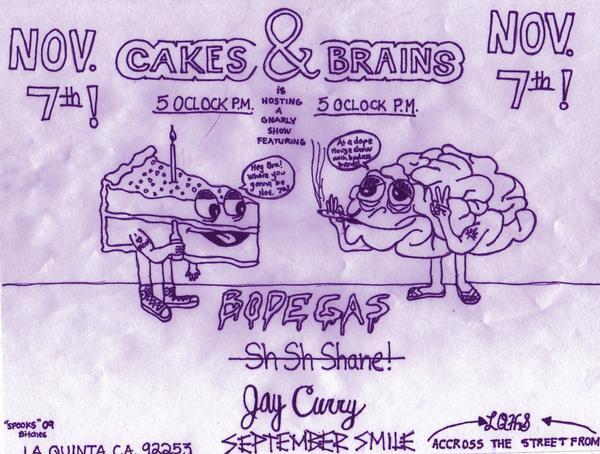 NOV. 7th!
CAKES & BRAINS
NOV. 7th!
5 OCLOCK P.M.
5 OCLOCK P.M.
IS
HOSTING
A
GNARLY
SHOW
FEATURING
Hey Bra!
Where you
gonna be
Nov. 7th?
At a dope
House show
with badass
bands!
BODEGAS
Sh Sh Shane!
Jay Curry
SEPTEMBER SMILE
"SPOOKS" 09
Bitches
LA QUINTA CA. 92253
LQHS
ACCROSS THE STREET FROM